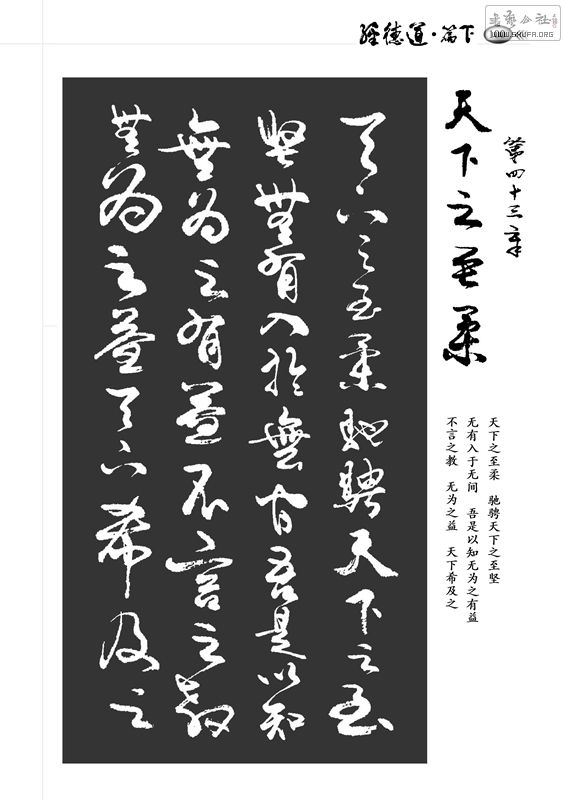 下篇·道德經
书艺公社
WWW.SHUFA.ORG
第四十三章
天下之至柔
天下之至柔 驰骋天下之至坚
无有入于无间 吾是以知无为之有益
不言之教 无为之益 天下希及之
天下之至柔馳騁天下之至
堅無有入於無間吾是以知
無為之有益不言之教
無為之益天下希及之